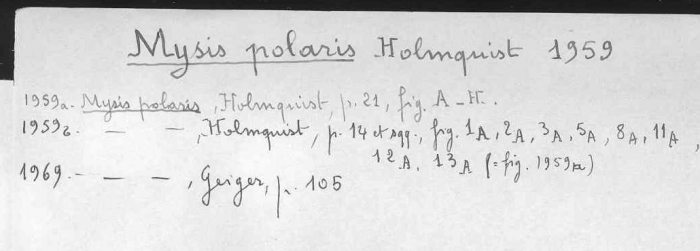 Mysis polaris Holmquist 1959
1959a. Mysis polaris, Holmquist, p. 21, fig. A-H.
1959b. — —, Holmquist, p. 14 et sqq., fig. 1A, 2A, 3A, 5A, 8A, 11A,
12A, 13A (= fig. 1959a)
1969. — — —, Geiger, p. 105